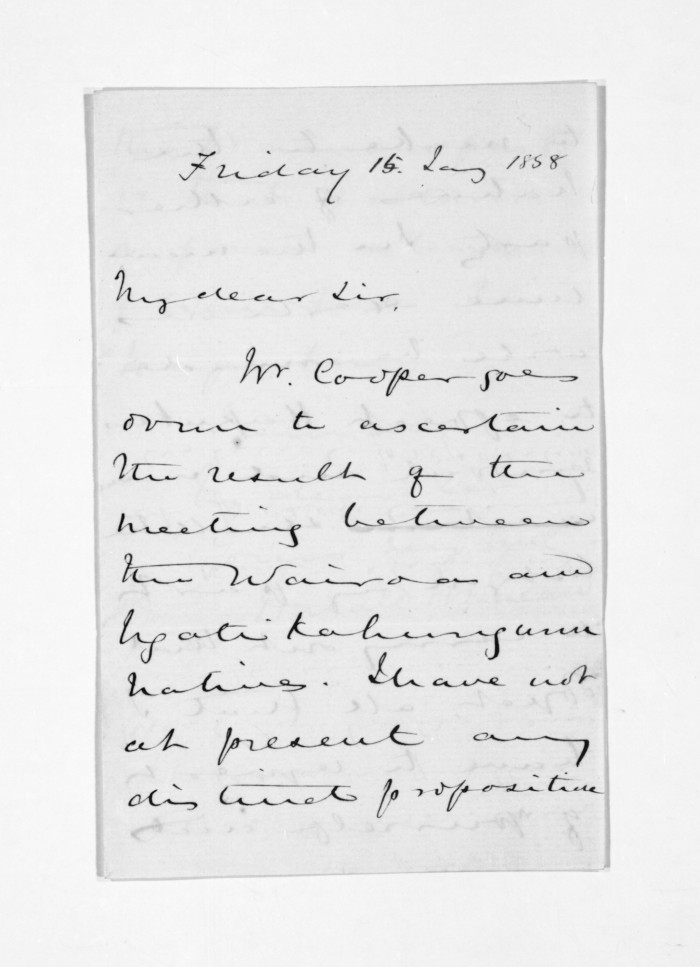 Friday 15. Jany 1858
My dear Sir,
Mr. Cooper goes
down to ascertain
the result of the
meeting between
the Wairoa and
Ngatikahungunu
natives. I have not
at present any
distinct proposition